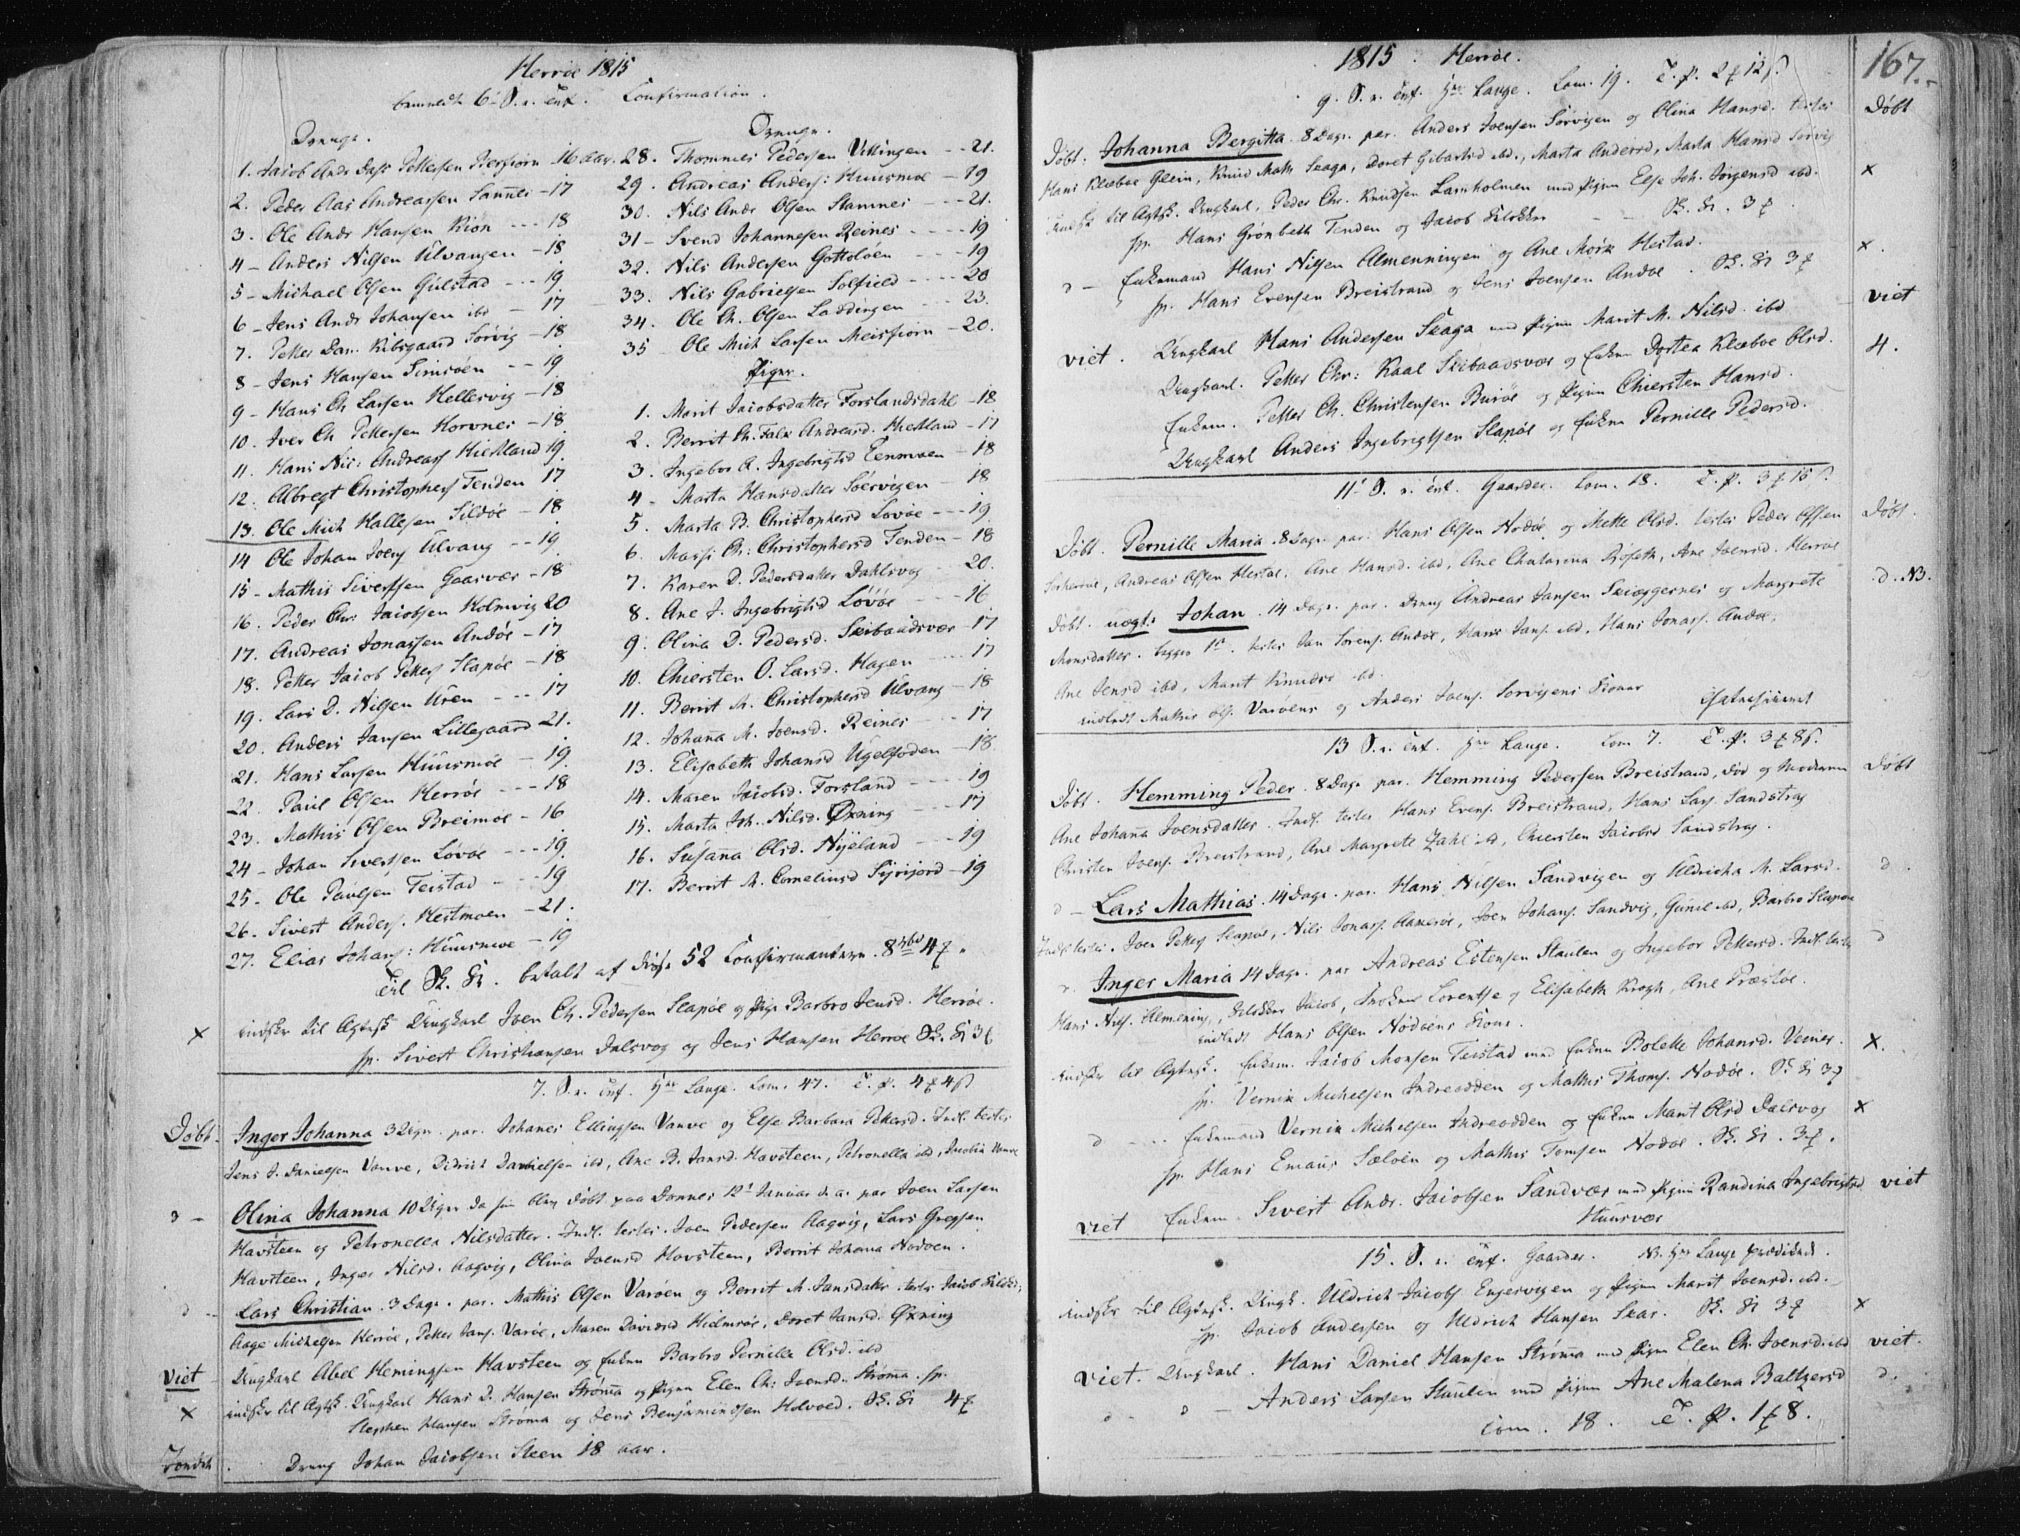 Herröe 1815
6te S. e. Trf. Confirmation.
Drenge.
1. Jacob Andr Dass Pettersen - 16 aar.
2. Peder Aas Andreassen Sannes - 17
3. Ole Andr Hansen Kiøn --- 18
4 - Anders Nilsen Ulvangen - 18
5 - Michael Olsen Gulstad --- 19
6 - Jens Andr Johansen ibd - 17
7. Petter Dan. Ribsgaard Sørvig - 18
8 - Jens Hansen Simsöen -- 19
9 - Hans Ch Larsen Hellesvig - 18
10. Iver Ch Pettersen Horvnes - 18
11. Hans Nic: Andreass Hiertland 19.
12. Albregt Christophers Tenden 17
13. Ole Mich Hallesen Sildöe - 18
14 Ole Johan Joens Ulvang -- 19
15 - Mathis Sivertsen Gaasvær - 18
16. Peder Chr: Jacobsen Holmvig 20
17. Andreas Jonassen Andöe - 17
18. Petter Jacob Petters Slapöe - 18
19. Lars D. Nilsen Uren --- 17
20. Anders Jansen Lillegaard 21.
21. Hans Larsen Huusmöe - 19
22. Paul Olsen Herröe --- 18
23. Mathis Olsen Breimoe - 16
24 - Johan Sivertsen Lövöe --- 19
25 - Ole Paulsen Teistad --- 19
26. Sivert Anders. Hestmoen - 21.
27. Elias Johans: Huusmoe - 19
Drenge.
28. Thommes Pedersen Vittingen -- 21.
29. Andreas Anders: Huusmoe - 19
30. Nils Andr Olsen Stamnes --- 21.
31 - Svend Johannesen Reines --- 19
32. Nils Andersen Gottolöen --- 19
33. Nils Gabrielsen Solfield --- 20
34. Ole Ch. Olsen Laddingen --- 23.
35 - Ole Mich Larsen Meisfiorn - 20.
Piger.
1. Marit Jacobsdatter Forslandsdahl - 18
2. Berrit Ch. Falk Andreasd. Hiertland - 17
3. Ingebor A. Ingebrigtsd Eenmoen - 18
4 - Marta Hansdatter Söervigen - 18
5. Marta B. Christophersd Lövöe --- 19
6. Massi Ch: Christophersd Tenden - 18
7. Karen D. Pedersdatter Dahlsvog - 20
8. Ane J. Ingebrigtsd Lövöe --- 16
9. Olina D. Pedersd. Skibaadsvær - 17
10. Chiersten O. Larsd. Hagen --- 17
11. Berrit M. Christophersd Ulvang - 18
12. Johanna M. Joensd. Reines --- 17
13. Elisabeth Johansd Ugelfoden - 18.
14. Maren Jacobsd. Forsland --- 19
15. Marta Joh. Nilsd. Øxning --- 17
16. Susanna Olsd. Nyeland --- 19
17. Berrit M. Corneliusd Syrijord - 19
Til betalt af disse 52 Confirmantere 8
× indskr til Ægtesk Ungkarl Joen Ch. Pedersen Slapöe og Pige Barbro Jensd. Herröe.
sp. Sivert Christiansen Dalsvog og Jens Hansen Herröe
7. S. e. Trf. Hr Lange. Com. 47. T. P.
Døbt. Inger Johanna 3 Uger. par. Johanes Ellingsen Vanve og Else Barbara Pettersd. Indl. testes
Jens J. Danielsen Vanve, Didrich Danielsen ibd, Ane B. Jansd. Havsteen, Petronella ibd, Jacobin Vanve
d - Olina Johanna 10 Uger da hun blev døbt paa Dønnes 12te Januar d. a. par Joen Larsen
Havsteen og Petronella Nilsdatter. Indl. testes. Joen Pedersen Aagvig, Lars Gregsen
Havsteen, Inger Nilsd. Aagvig, Olina Joensd Havsteen, Berrit Johanna Nordöen.
d - Lars Christian 3 Dage. par. Mathis Olsen Varöen og Berrit M. Jansdatter. testes Jacob
Aage Michelsen Herröe, Petter Jans. Varöe, Maren Davidsd Hielmsöe, Doret Jansd. Øxning
Viet - Ungkarl Abel Hemingsen Havsteen og Enken Barbro Pernille Olsd. ibd
× indskr til Ægtesk. Ungkarl Hans D. Hansen Strømma og Pigen Elen Ch: Joensd. Strømma. sp.
Stephen Hansen Strøma og Jens Benjaminsen
Dreng Johan Jacobsen Steen 18 aar.
1815. Herröe. 167.
9. S. e. Trf. Hr Lange. Com. 19. T. P.
Døbt. Johanna Bergitta 8 Dage. par. Anders Joensen Sørvigen og Olina Hansd. testes Døbt
Hans Klæboe Glein, Knud Math Skaga, Doret Gibartsd ibd., Marta Andersd, Marta Hansd Sørvig
til Ægtesk. Ungkarl, Peder Chr. Knudsen Lamholmen med Pigen Else Joh. Jörgensd ibd. ×
sp. Hans Grönbeth Tenden og Jacob
d - Enkemand Hans Nilsen Almenningen og Ane Mork Hestad. ×.
sp. Hans Evensen Breistrand og Jens Joensen Andöe.
Viet. Ungkarl Hans Andersen Skaga med Pigen Marit M. Nilsd. ibd Viet
Ungkarl. Petter Chr: Kaal Skibaadsvær og Enken Dortea Klæboe Olsd. 4.
Enkem. Petter Ch. Christensen Buröe og Pigen Chiersten Hansd.
Ungkarl Anders Ingebrigtsen Slapöe og Enken Pernille Pedersd.
11te S. e. Trf. Gaarder. Com. 18. T. P.
Døbt. Pernille Maria. 8 Dage. par. Hans Olsen Nordöe og Mette Olsd. testes Peder Olsen Døbt.
Andreas Olsen Hestad. Ane Hansd. ibd, Ane Chatarina, Ane Joensd. Herröe
Døbt. uægte Johan. 14 Dage. par. Dreng Andreas Jansen Skiæggesnes og Margrete d. NB.
Monsdatter. testes Jan Sörens. Andöe, Hans Jans. ibd, Hans Jonass. Andöe,
Ane Jensd ibd, Marit Knudsd ibd.
indledt Mathis Ols. Varöens og Anders Joens. Sørvigens Koner
13 S. e. Trf. Hr Lange. Com. 7. T. P.
Døbt. Hemming Peder. 8 Dage par. Hemming Pedersen Breistrand, død og Moderen Døbt
Ane Johanna Joensdatter. Indl. testes Hans Evens. Breistrand, Hans Lars. Sandstrag
Christen Joens. Breistrand, Ane Margrete Zahl ibd, Chiersten Jacobsd Sandstrag.
d - Lars Mathias. 14 Dage. par. Hans Nilsen Sandvigen og Uldricha M. Larsd. d.
Indl. testes. Joen Petters Slapöe, Nils Jonass. Aakeröe, Joen Johans. Sandvig, Gunil ibd, Barbro Slapöe
d. Inger Maria 14 Dage. par Andreas Estensen Staulen og Ingebor Pettersd. Indl. testes d
Hans Nils. Almening, Jacob, Lorentse og Elisabeth Krogh, Ane Præstöe.
indledt Hans Olsen Nordöens Kone.
indskr til Ægtesk. Enkem. Jacob Monsen Teistad med Enken Bolette Johansd. Veines. ×.
sp. Vernik Michelsen Indreodden og Mathis Thoms. Nordöe.
d ... Enkemand Vernik Michelsen Indreodden og Enken Marit Olsd Dalsvog ×
sp. Hans Emaus Sælöen og Mathis Tomsen Nordöe.
Viet Enkem. Sivert Andr. Jacobsen Sandvær med Pigen Randina Ingebrigtsd viet
Huusvær
15. S. e. Trf. Gaarder. NB. Hr Lange prædikede.
indskr til Ægtesk. Ungk. Uldrich Jacobs Engesvigen og Pigen Marit Joensd. ibd.
sp. Jacob Andersen og Uldrich Hansen Skar. ×
Viet. Ungkarl. Hans Daniel Hansen Strømma med Pigen Elen Ch. Joensd ibd viet.
d - d - Anders Larsen Staulen med Pigen Ane Malena Baltzersd d.
Com. 18. T. P.